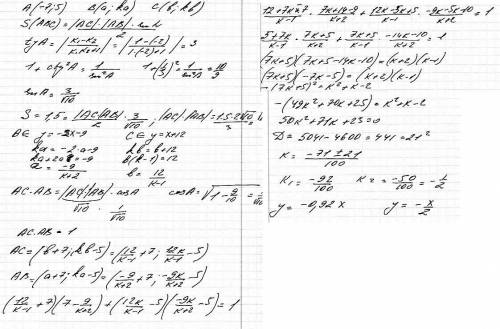 A(-7;5) B(a; ka) C(b; kb)
S(ABC) = |AC|·|AB|·sin A / 2
tg A = |k₁-k₂ / k₁·k₂+1| = |1-(-2) / 1·(-2)+1| = 3
1 + ctg²A = 1/sin²A 1+(1/3)² = 1/sin²A = 10/9
sin A = 3/√10
S = 1,5 = |AC||AB|/2 · 3/√10 ; |AC|·|AB| = 1.5·2√10/3 = √10
B ∈ y = -2x-9 C ∈ y = x+12
ka = -2a-9 kb = b+12
ka+2a = -9 b(k-1) = 12
a = -9/k+2 b = 12/k-1
AC·AB = |AC|·|AB|·cos A cos A = √1-9/10 = 1/√10
√10 · 1/√10
AC·AB = 1
AC = (b+7; kb-5) = (12/k-1 +7; 12k/k-1 -5)
AB = (a+7; ka-5) = (-9/k+2 +7; -9k/k+2 -5)
(12/k-1 +7)(7- 9/k+2) + (12k/k-1 -5)(-9k/k+2 -5) = 1
12+7k-7/k-1 · 7k+14-9/k+2 + 12k-5k+5/k-1 · -9k-5k-10/k+2 = 1
5+7k/k-1 · 7k+5/k+2 + 7k+5/k-1 · -14k-10/k+2 = 1
(7k+5)(7k+5-14k-10) = (k+2)(k-1)
(7k+5)(-7k-5) = (k+2)(k-1)
-(7k+5)² = k²+k-2
-(49k²+70k+25) = k²+k-2
50k²+71k+23=0
D = 5041-4600 = 441 = 21²
k = -71±21/100
k₁ = -92/100 k₂ = -50/100 = -1/2
y = -0,92x y = -x/2